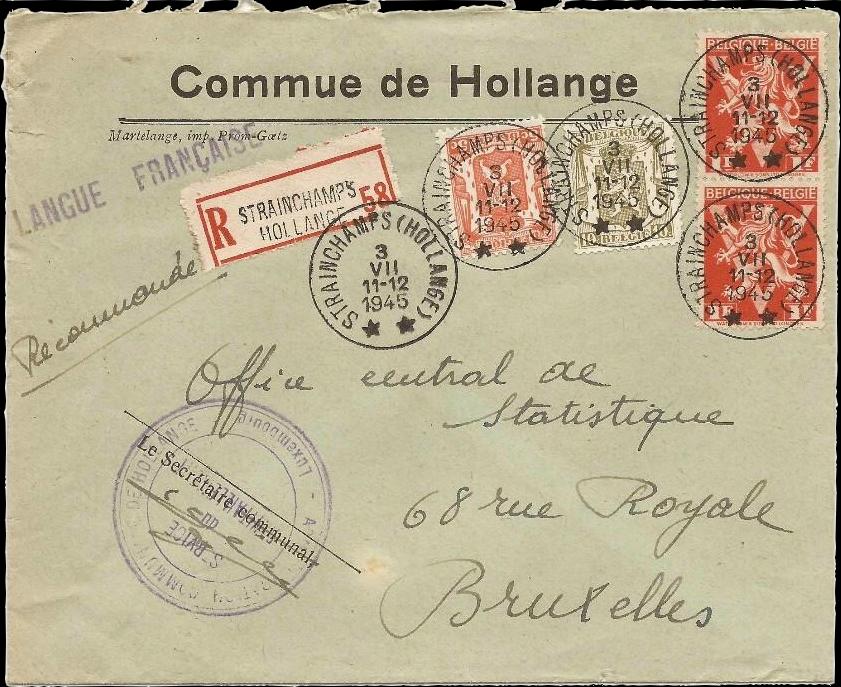 Commue de Hollange
Martelange, imp. Prom-Gœtz
LANGUE FRANÇAISE
R STRAINCHAMPS
HOLLANGE 58
STRAINCHAMPS (HOLLANGE)
3
VII
11-12
1945
STRAINCHAMPS (HOLLANGE)
3
VII
11-12
1945
BELGIQUE
10 BELGIE 10
STRAINCHAMPS (HOLLANGE)
3
VII
11-12
1945
BELGIQUE-BELGIË
1F
STRAINCHAMPS (HOLLANGE)
3
VII
11-12
1945
BELGIQUE-BELGIË
1F 1F
STRAINCHAMPS (HOLLANGE)
3
VII
11-12
1945
Récommandé
Office central de
Statistique
68 rue Royale
Bruxelles
Le Secrétaire communal,
DE HOLLANGE
Luxembourg